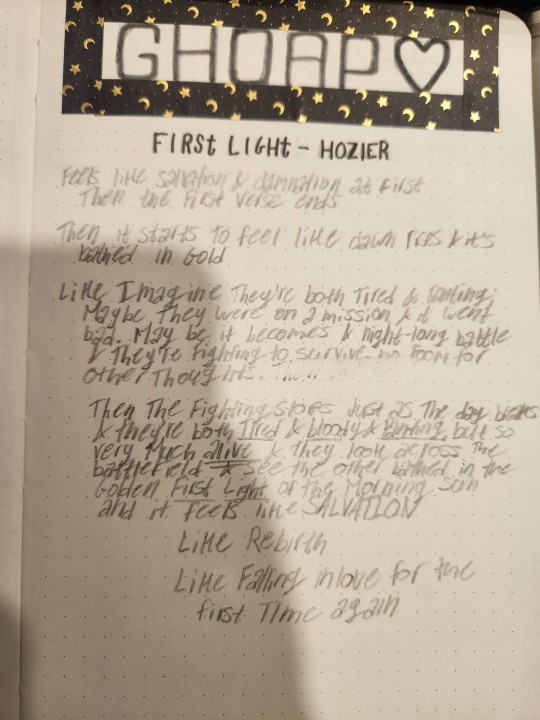 GHOAP♡
FIRST LIGHT - HOZIER
Feels like salvation & damnation at first
Then the first verse ends
Then it starts to feel like dawn rises & it's
bathed in Gold
Like Imagine They're both Tired & Panting.
Maybe They were on a mission & it went
bad. May be it becomes a night-long battle
& They're Fighting to survive no room for
other Thoughts.
Then The Fighting stops Just as The day breaks
& they're both Tired & bloody & Panting but so
very Much alive & They look across the
battlefield & see the other bathed in the
Golden First Light of the Morning Sun
and it feels like SALVATION
Like Rebirth
Like Falling in love for the
first Time again